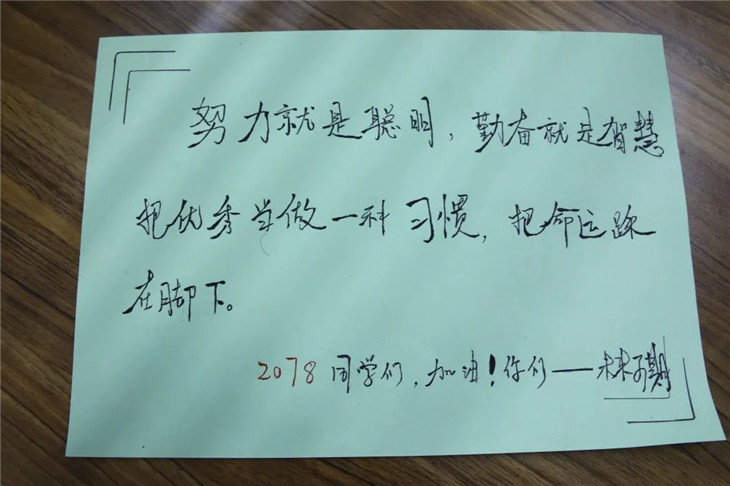 努力就是聪明，勤奋就是智慧
把优秀当做一种习惯，把命运踩
在脚下。
2078 同学们，加油！你们——未来可期